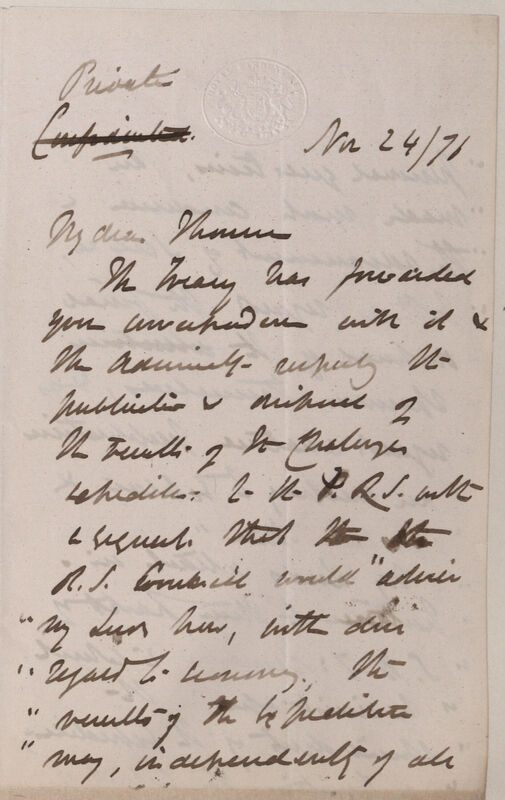 Private
Confidential.
Nov 24/76
My dear Thomson
The Treasury has forwarded
your correspondence with it &
the Admiralty respecting the
publication & disposal of
the results of the Challenger
Expedition to the P.R.S. with
a request that the
R.S. Council would "advise
" my Lords how, with due
" regard to economy, the
" results of the Expedition
" may, independently of all